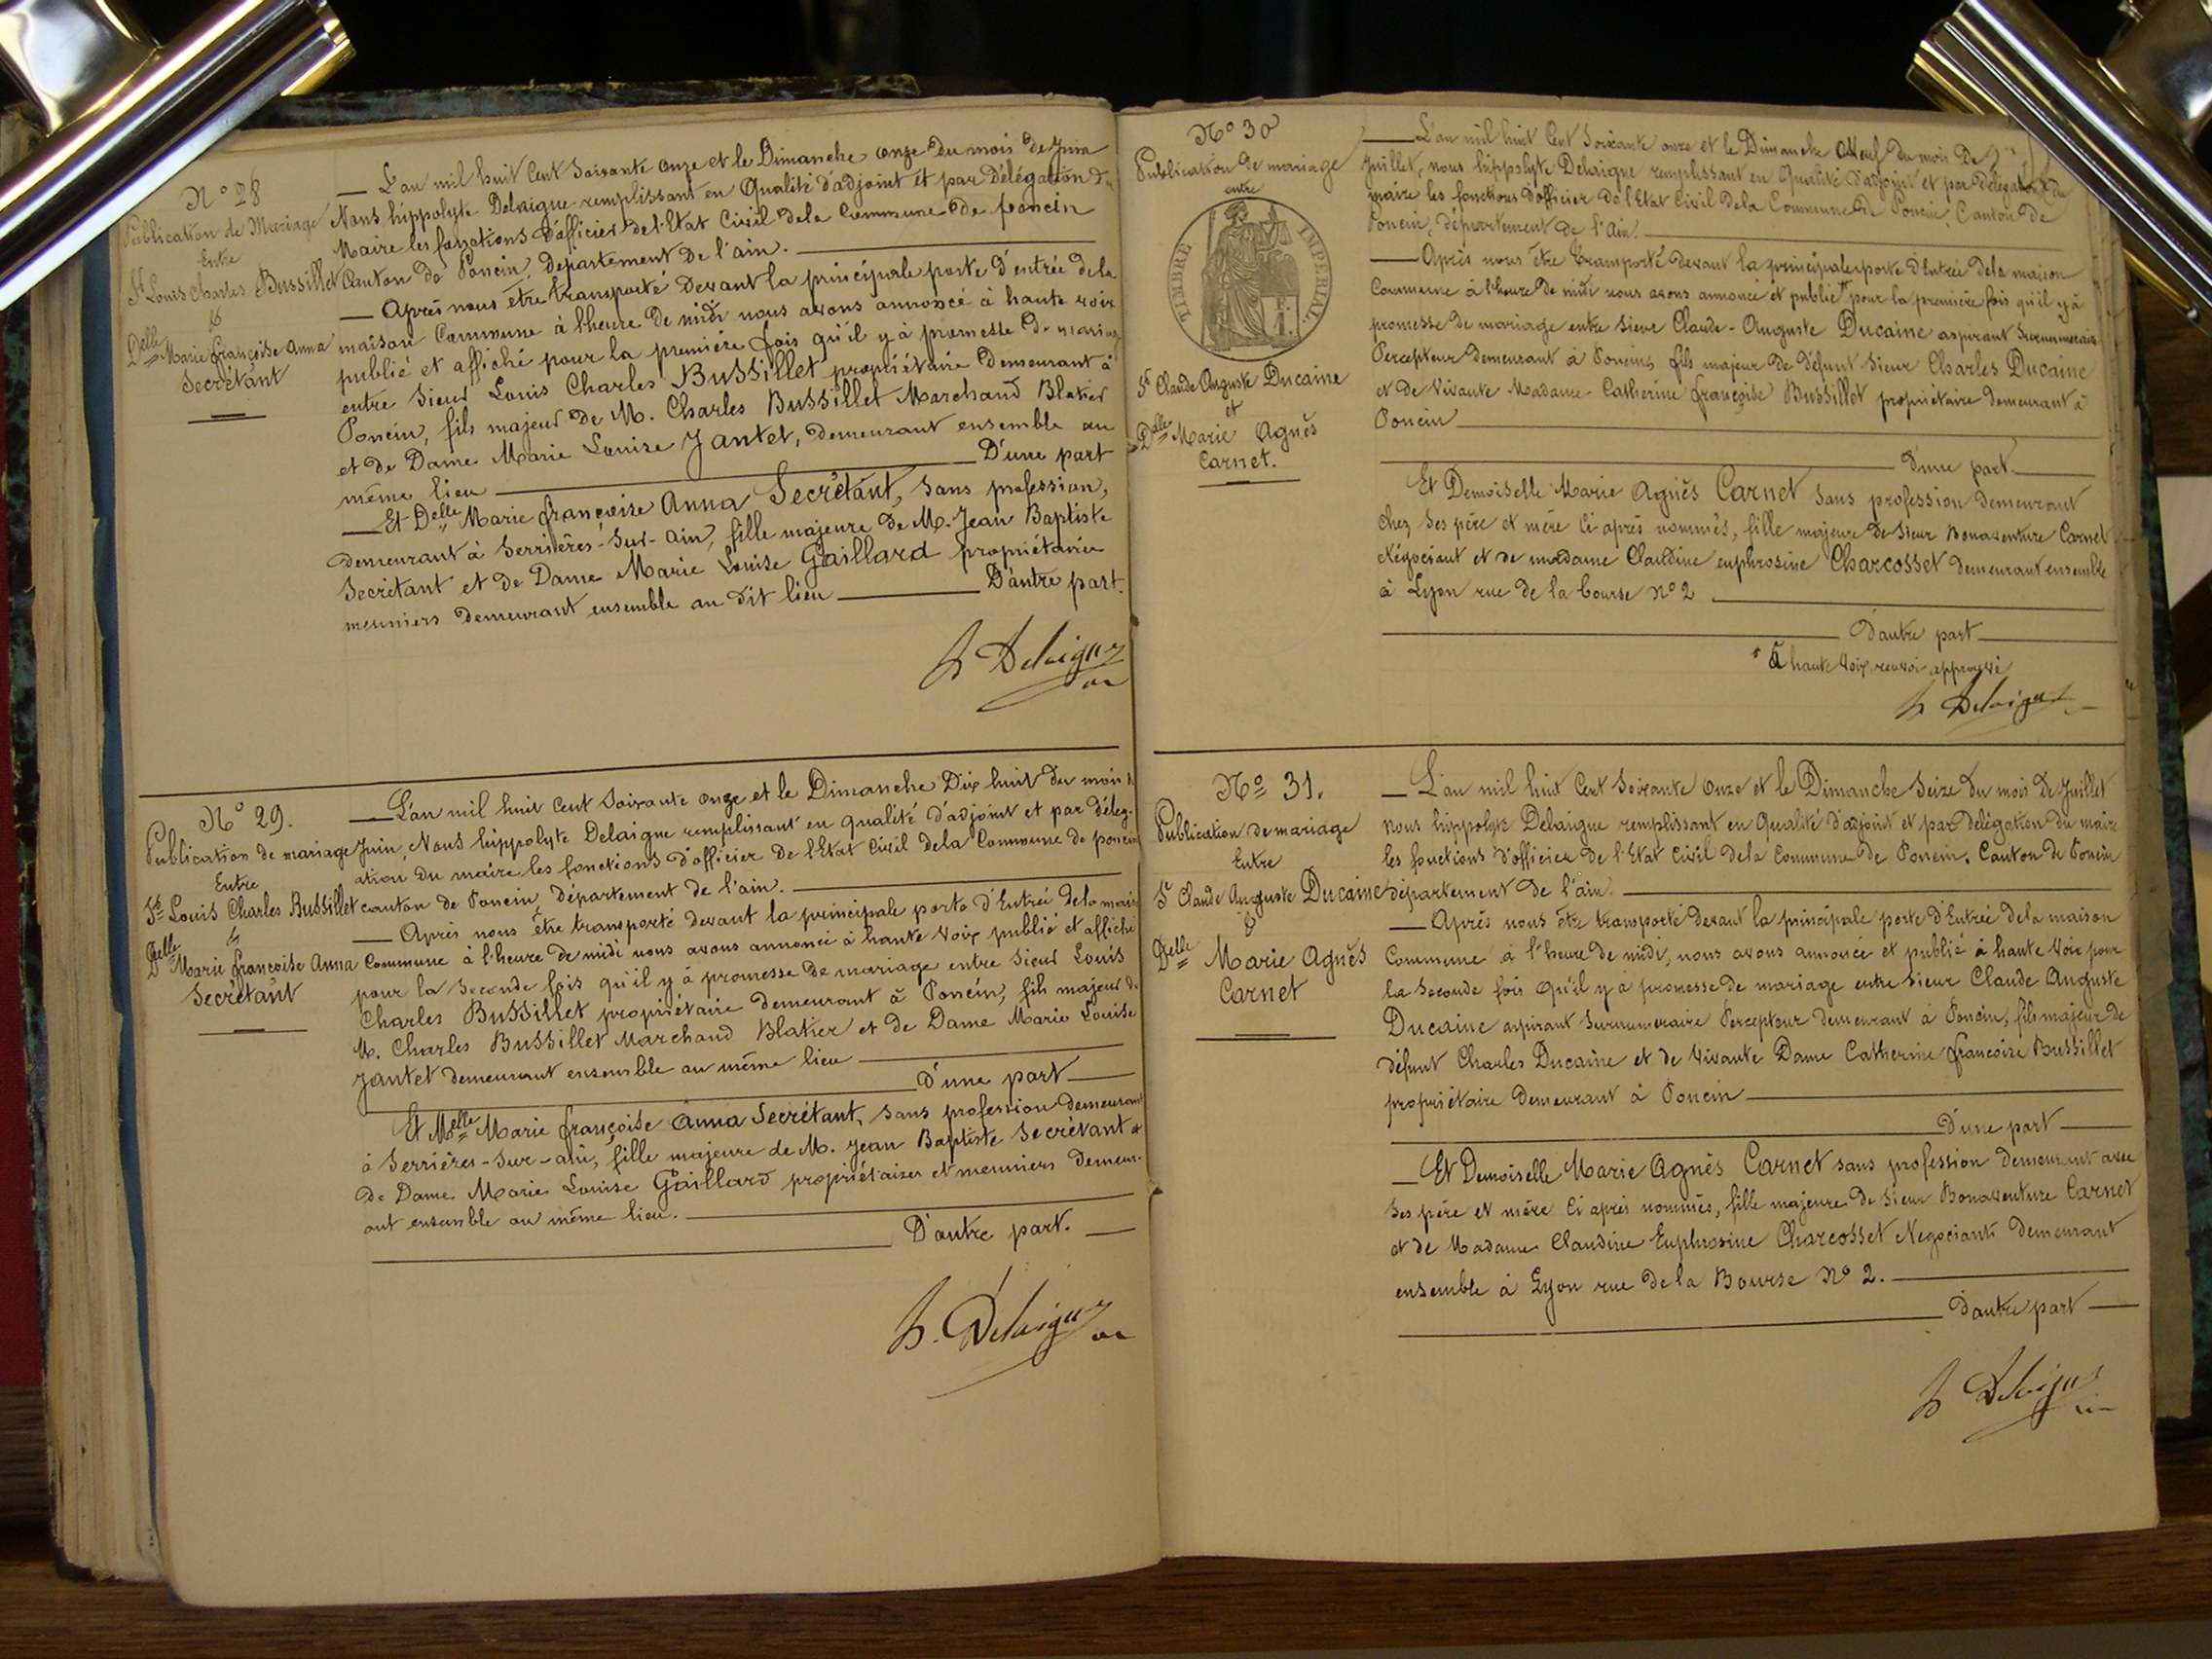 N° 28
Publication de Mariage
Entre
Sr Louis Charles Bussillet
&
Delle Marie françoise Anna
Secrétant
— L'an mil huit Cent Soixante onze et le Dimanche onze du mois de Juin
Nous hippolyte Delaigue remplissant en Qualité d'adjoint et par Délégation du
Maire les fonctions d'officier de l'Etat Civil de la Commune de poncin
Canton de Poncin, département de l'ain.
— Après nous être transporté devant la principale porte d'entrée de la
maison Commune à l'heure de midi nous avons annoncé à haute voix
publié et affiché pour la première fois qu'il y à promesse de mariage
entre Sieur Louis Charles Bussillet propriétaire demeurant à
Poncin, fils majeur de M. Charles Bussillet Marchand Blatier
et de Dame Marie Louise Jantet, demeurant ensemble au
même lieu D'une part
— Et Delle Marie françoise Anna Secrétant, Sans profession,
demeurant à Serrières-Sur-Ain, fille majeure de M. Jean Baptiste
Secrétant et de Dame Marie Louise Gaillard propriétaires
meuniers demeurant ensemble au dit lieu D'autre part.
h Delaigue
N° 29.
Publication de mariage
Entre
Sr Louis Charles Bussillet
&
Delle Marie françoise Anna
Secrétant
— L'an mil huit Cent Soixante onze et le Dimanche Dix huit du mois de
Juin, Nous hippolyte Delaigue remplissant en qualité d'adjoint et par déleg-
ation du maire les fonctions d'officier de l'Etat Civil de la Commune de poncin
canton de Poncin, Département de l'ain.
— Après nous être transporté devant la principale porte d'Entrée de la maison
Commune à l'heure de midi nous avons annoncé à haute voix publié et affiché
pour la Seconde fois qu'il y à promesse de mariage entre Sieur Louis
Charles Bussillet propriétaire demeurant à Poncin, fils majeur de
M. Charles Bussillet Marchand Blatier et de Dame Marie Louise
Jantet demeurant ensemble au même lieu
D'une part
Et Melle Marie françoise Anna Secrétant, Sans profession demeurant
à Serrières-Sur-ain, fille majeure de M. Jean Baptiste Secrétant et
de Dame Marie Louise Gaillard propriétaires et meuniers demeur-
ant ensemble au même lieu.
D'autre part.
h. Delaigue
N° 30
Publication de mariage
entre
TIMBRE IMPERIAL
Sr Claude Auguste Ducaine
et
Delle Marie Agnès
Carnet.
— L'an mil huit Cent Soixante onze et le Dimanche Neuf du mois De
Juillet, nous hippolyte Delaigue remplissant en Qualité d'adjoint et par délégation du
maire les fonctions d'officier de l'Etat Civil de la Commune de Poncin, Canton de
Poncin, département de l'ain.
— Après nous être transporté devant la principale porte d'Entrée de la maison
Commune à l'heure de midi nous avons annoncé et publié * pour la première fois qu'il y à
promesse de mariage entre Sieur Claude-Auguste Ducaine aspirant Surnuméraire
Percepteur demeurant à Poncin, fils majeur de défunt Sieur Charles Ducaine
et de Vivante Madame Catherine françoise Bussillet propriétaire demeurant à
Poncin
D'une part
Et Demoiselle Marie Agnès Carnet Sans profession demeurant
chez ses père et mère Ci après nommés, fille majeure de Sieur Bonaventure Carnet
Négociant et de madame Claudine euphrosine Charcosset demeurant ensemble
à Lyon rue de la bourse N° 2
D'autre part
* à haute voix, renvoi approuvé
h Delaigue
N° 31.
Publication de mariage
Entre
Sr Claude Auguste Ducaine
&
Delle Marie Agnès
Carnet
— L'an mil huit Cent Soixante Onze et le Dimanche Seize du mois de Juillet
nous hippolyte Delaigue remplissant en Qualité d'adjoint et par délégation du maire
les fonctions d'officier de l'Etat Civil de la Commune de Poncin. Canton de Poncin
département de l'ain.
— Après nous être transporté devant la principale porte d'Entrée de la maison
Commune à l'heure de midi, nous avons annoncé et publié à haute Voix pour
la Seconde fois qu'il y à promesse de mariage entre Sieur Claude Auguste
Ducaine aspirant Surnumeraire Percepteur demeurant à Poncin, fils majeur de
défunt Charles Ducaine et de Vivante Dame Catherine françoise Bussillet
propriétaire demeurant à Poncin
D'une part
— Et Demoiselle Marie Agnès Carnet sans profession demeurant avec
Ses père et mère Ci après nommés, fille majeure de Sieur Bonaventure Carnet
et de Madame Claudine Euphrosine Charcosset Negociants demeurant
ensemble à Lyon rue de la Bourse N° 2.
d'autre part
h Delaigue